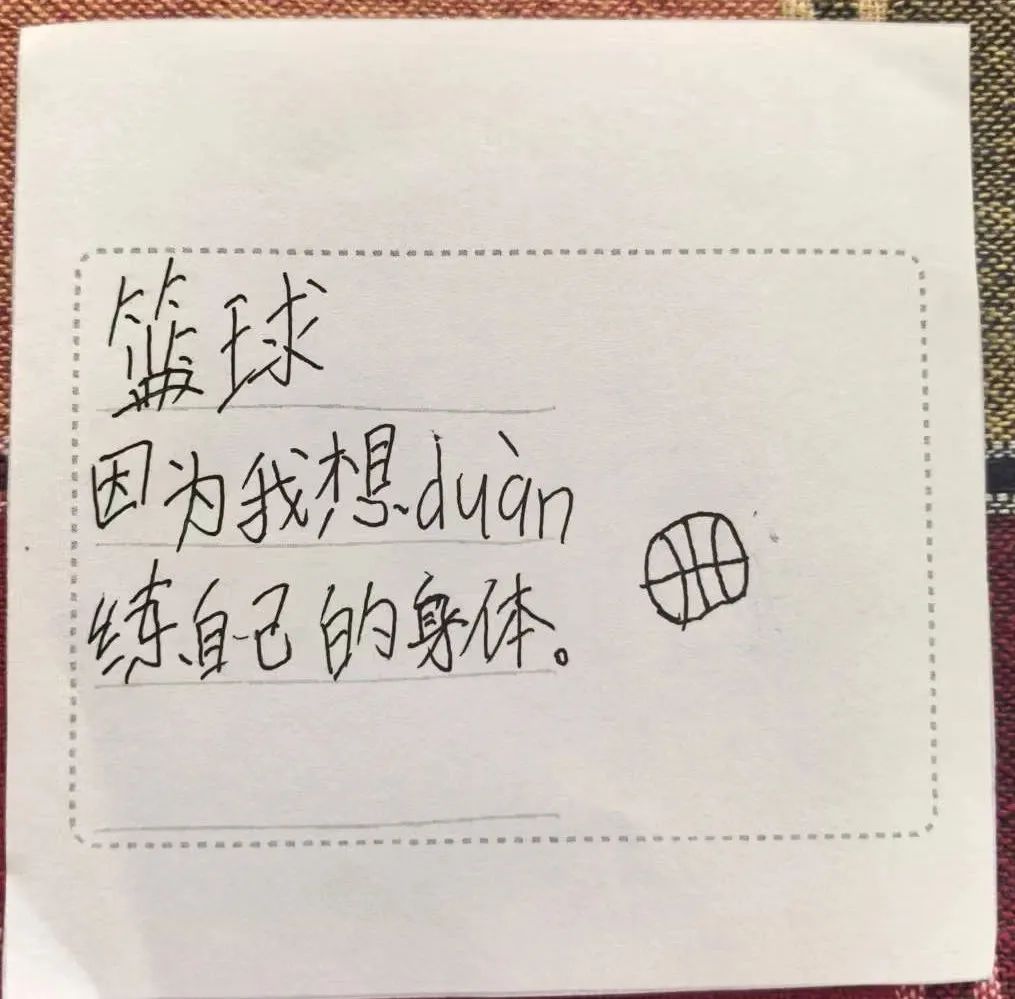 篮球
因为我想duàn
练自己的身体。